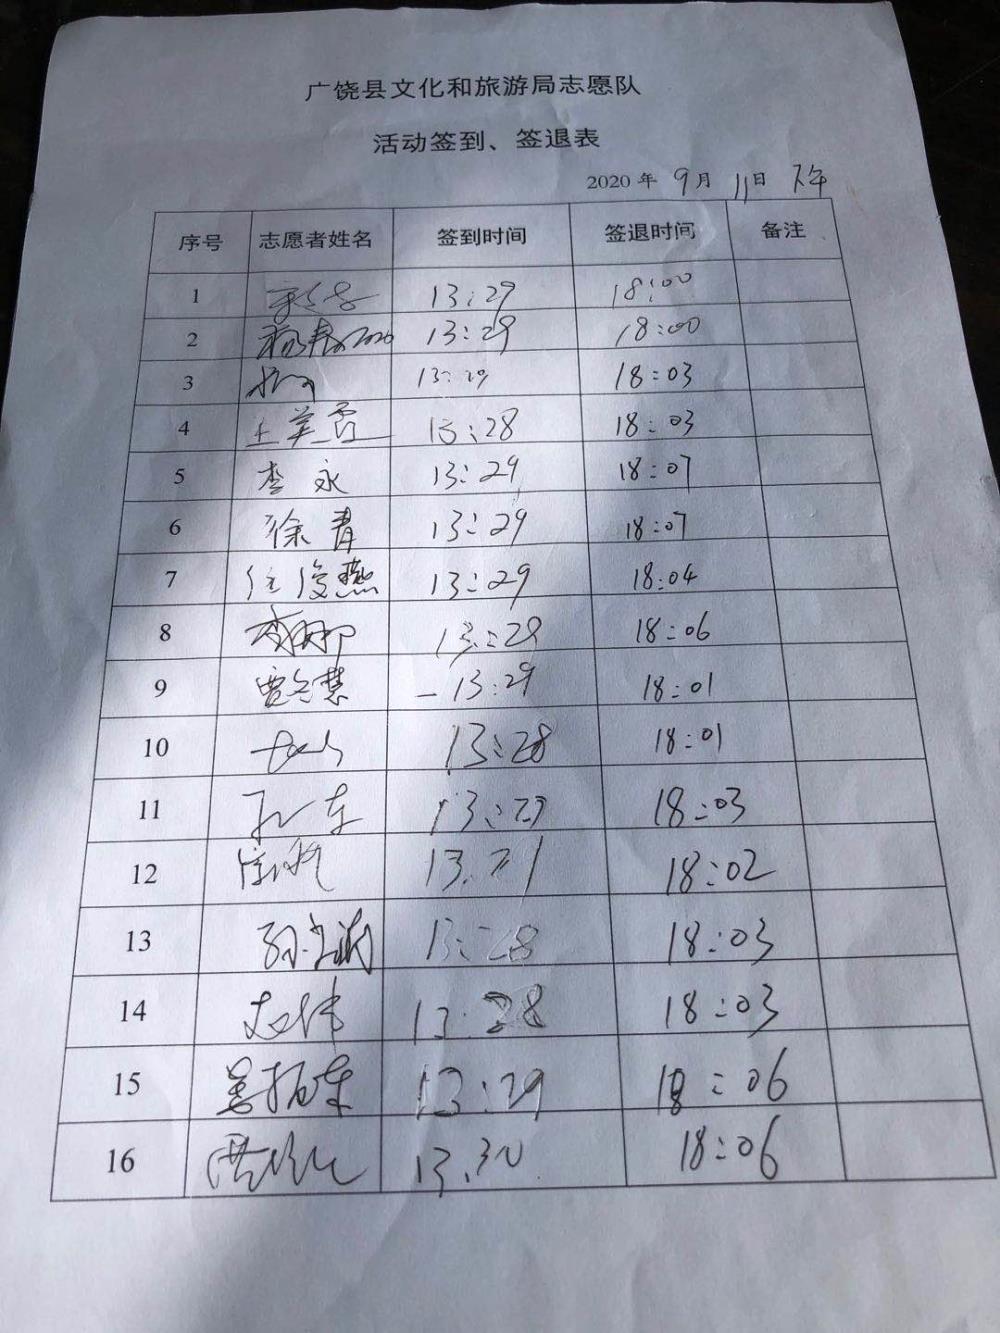 广饶县文化和旅游局志愿队
活动签到、签退表
2020年 9月 11日 下午
序号 志愿者姓名 签到时间 签退时间 备注
1 13:29 18:00
2 13:29 18:00
3 13:29 18:03
4 王美霞 13:28 18:03
5 李永 13:29 18:07
6 徐青 13:29 18:07
7 任俊燕 13:29 18:04
8 李娜 13:29 18:06
9 13:29 18:01
10 13:28 18:01
11 13:29 18:03
12 18:02
13 13:28 18:03
14 13:28 18:03
15 13:29 18:06
16 13.30 18:06